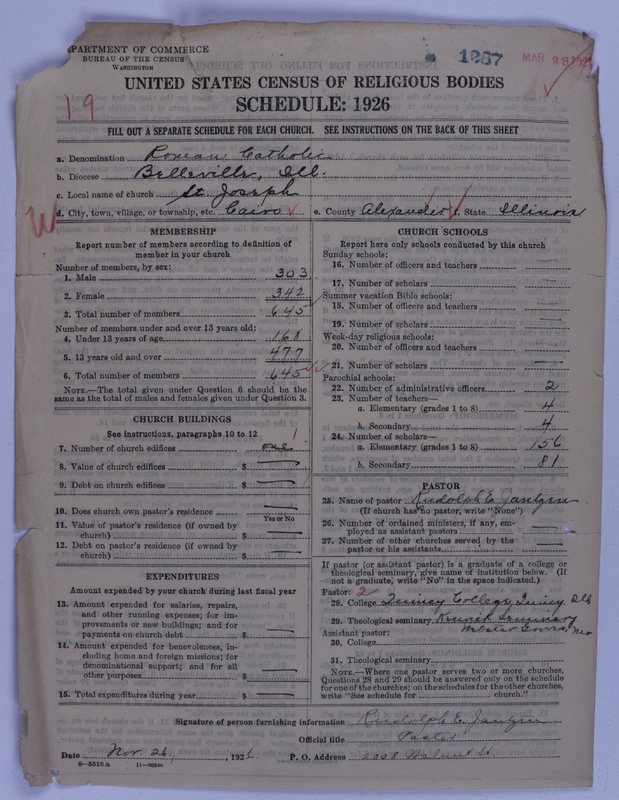 DEPARTMENT OF COMMERCE
BUREAU OF THE CENSUS
WASHINGTON
1287
MAR 28 192
UNITED STATES CENSUS OF RELIGIOUS BODIES
SCHEDULE: 1926
19
FILL OUT A SEPARATE SCHEDULE FOR EACH CHURCH. SEE INSTRUCTIONS ON THE BACK OF THIS SHEET
a. Denomination Roman Catholic
b. Diocese Belleville, Ill.
c. Local name of church St. Joseph
d. City, town, village, or township, etc. Cairo e. County Alexander f. State Illinois
MEMBERSHIP
Report number of members according to definition of
member in your church
Number of members, by sex:
1. Male 303
2. Female 342
3. Total number of members 645
Number of members under and over 13 years old:
4. Under 13 years of age 168
5. 13 years old and over 477
6. Total number of members 645
NOTE.—The total given under Question 6 should be
same as the total of males and females given under Question 3.
CHURCH BUILDINGS
See instructions, paragraphs 10 to 12
7. Number of church edifices one 1
8. Value of church edifices $
9. Debt on church edifices $
10. Does church own pastor's residence
Yes or No
11. Value of pastor's residence (if owned by
church) $
12. Debt on pastor's residence (if owned by
church) $
EXPENDITURES
Amount expended by your church during last fiscal year
13. Amount expended for salaries, repairs,
and other running expenses; for im-
provements or new buildings; and for
payments on church debt $
14. Amount expended for benevolences, in-
cluding home and foreign missions; for
denominational support; and for all
other purposes $
15. Total expenditures during year $
CHURCH SCHOOLS
Report here only schools conducted by this church
Sunday schools:
16. Number of officers and teachers
17. Number of scholars
Summer vacation Bible schools:
18. Number of officers and teachers
19. Number of scholars
Week-day religious schools:
20. Number of officers and teachers
21. Number of scholars
Parochial schools:
22. Number of administrative officers 2
23. Number of teachers—
a. Elementary (grades 1 to 8) 4
b. Secondary 4
24. Number of scholars—
a. Elementary (grades 1 to 8) 156
b. Secondary 81
PASTOR
25. Name of pastor Rudolph E. Jantzen
(If church has no pastor, write "None")
26. Number of ordained ministers, if any, em-
ployed as assistant pastors
27. Number of other churches served by the
pastor or his assistants
If pastor (or assistant pastor) is a graduate of a college or
theological seminary, give name of institution below. (If
not a graduate, write "No" in the space indicated.)
Pastor: 2
28. College Quincy College, Quincy Ill
29. Theological seminary Kenrick Seminary
Webster Groves, Mo
Assistant pastor:
30. College
31. Theological seminary
NOTE.—Where one pastor serves two or more churches,
Questions 28 and 29 should be answered only on the schedule
for one of the churches; on the schedules for the other churches,
write "See schedule for church."
Signature of person furnishing information Rudolph E. Jantzen
Official title Pastor
Date Nov. 26, 1926 P. O. Address 2008 Walnut St
8-5518 a 11-9054a